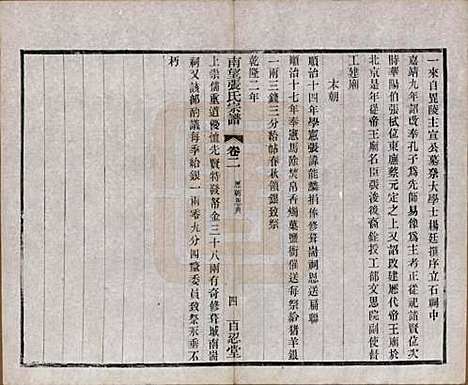 一來自毘陵主宣公墓祭大學士楊廷撰序立石祠中
嘉靖九年詔改奉孔子爲先師易像爲主考正從祀諸賢位次
時華陽伯張栻位東廡蔡元定之上又詔改建歷代帝王廟於
北京是年從帝王廟名臣張浚後裔銓投工部文思院副使督
工建廟
本朝
順治十四年學憲張諱能鱗捐俸修葺崗祠恩送扁聯
順治十七年奉憲馬除焚帛香燭菓鹽銜催送每祭給猪羊銀
一兩三錢三分給帖春秋領銀致祭
乾隆二年
上崇儒重道優恤先賢特發帑金三十八兩有奇修葺城南崗
祠又該部酌議每季給銀一兩零九分四釐委員致祭永垂不
朽
南望張氏宗譜
卷二
四
百忍堂